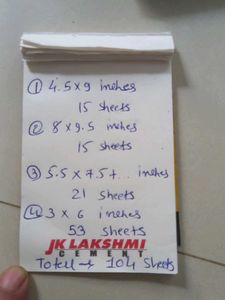 ① 4.5 x 9 inches
15 sheets
② 8 x 9.5 inches
15 sheets
③ 5.5 x 7.5+.. inches
21 sheets
④ 3 x 6 inches
53 sheets
JK LAKSHMI
CEMENT
Total → 104 sheets